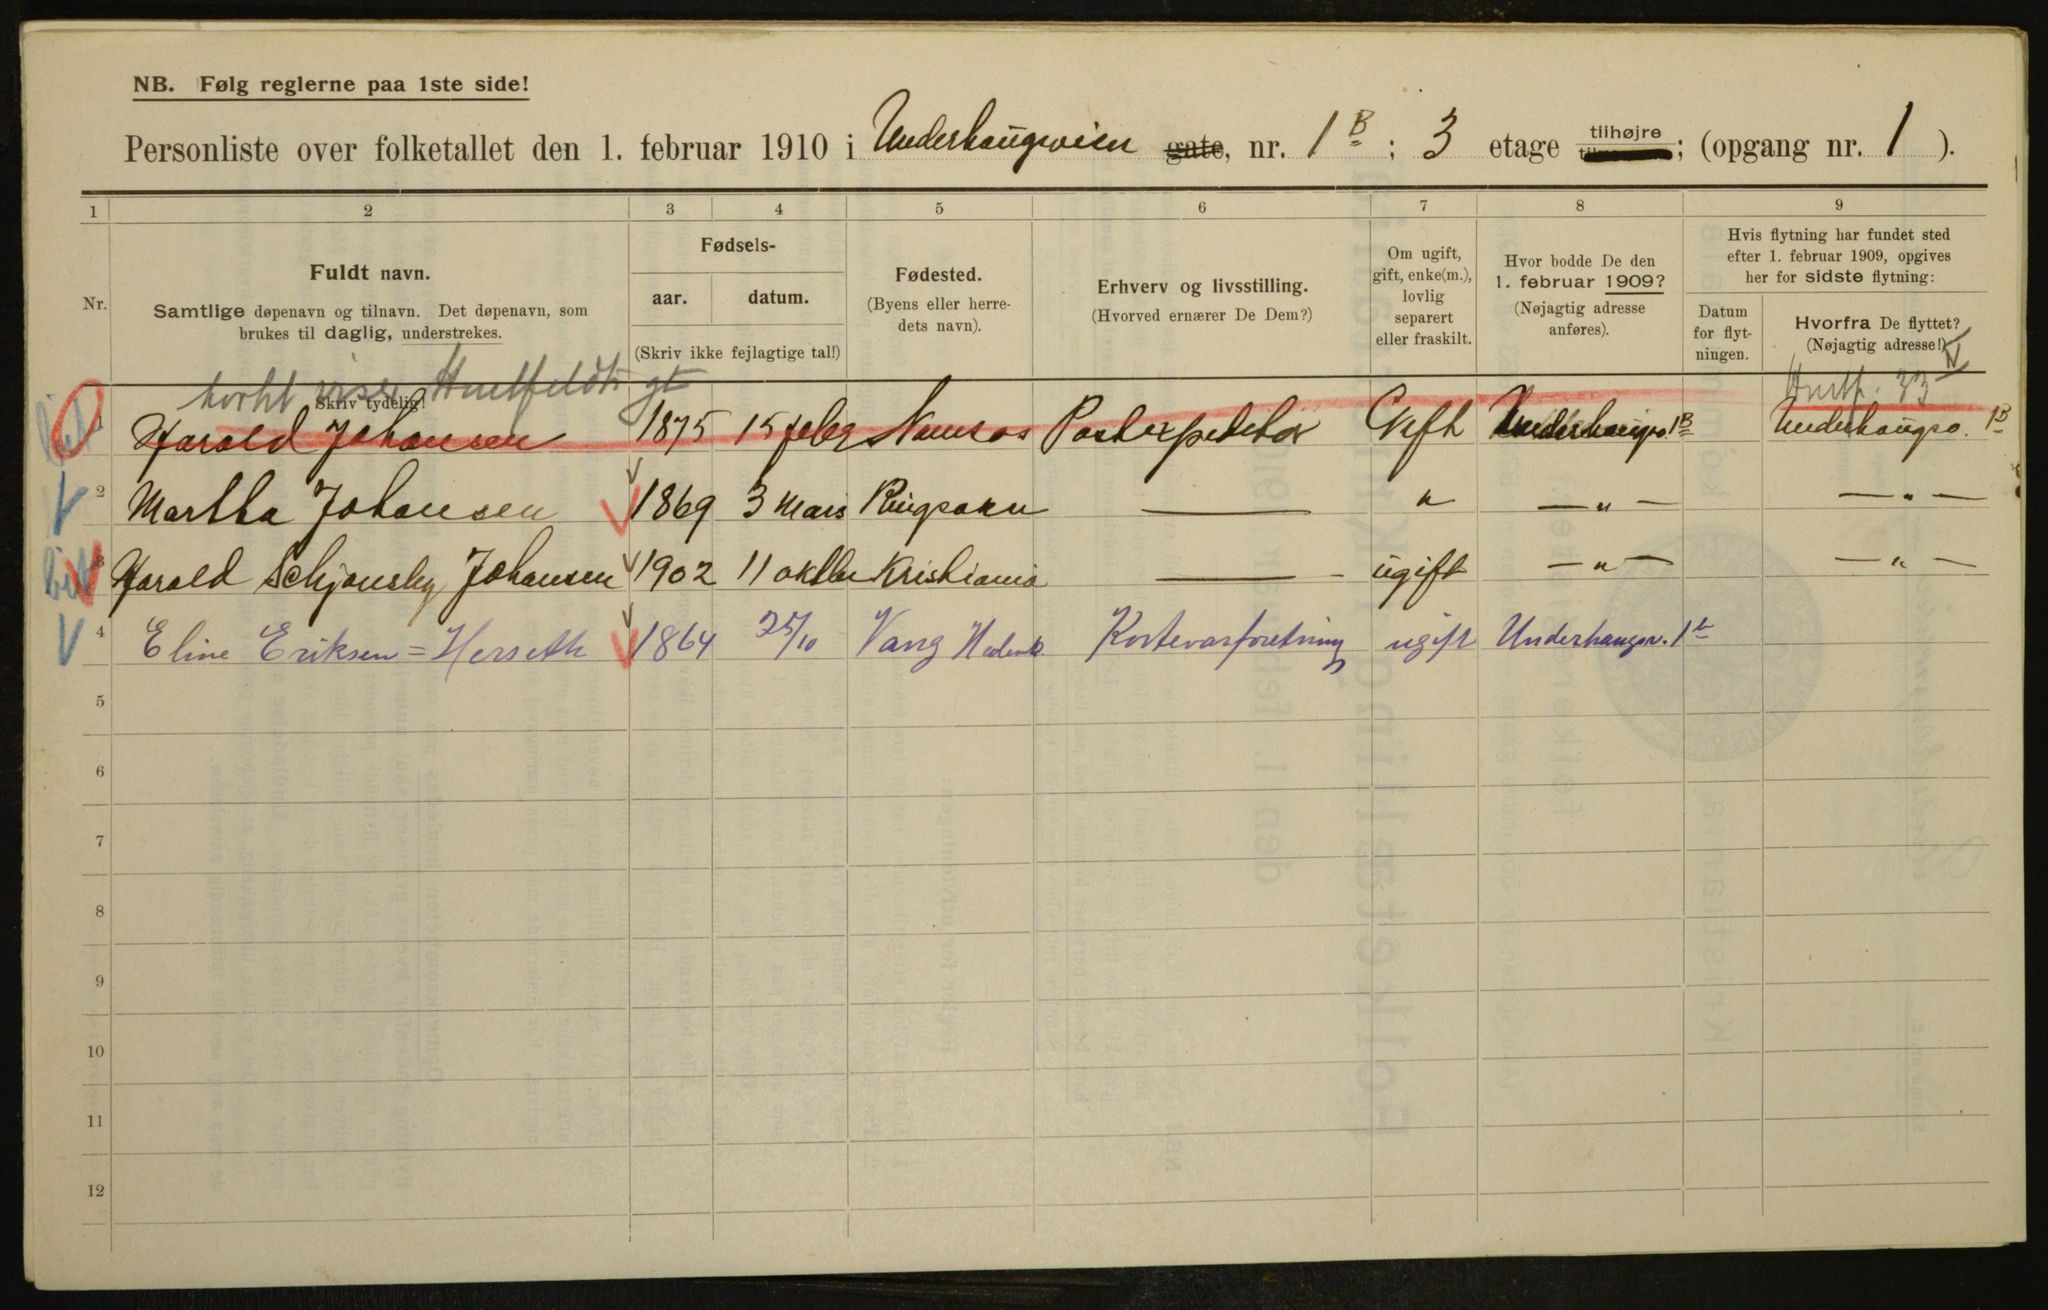 NB. Følg reglerne paa 1ste side!
Personliste over folketallet den 1. februar 1910 i Underhaugsveien gate, nr. 1B; 3 etage tilhøjre; (opgang nr. 1).
1 2 3 4 5 6 7 8 9
Nr.
Fuldt navn.
Samtlige døpenavn og tilnavn. Det døpenavn, som
brukes til daglig, understrekes.
Skriv tydelig!
Fødsels-
aar. datum.
(Skriv ikke fejlagtige tal!)
Fødested.
(Byens eller herre-
dets navn).
Erhverv og livsstilling.
(Hvorved ernærer De Dem?)
Om ugift,
gift, enke(m.),
lovlig
separert
eller fraskilt.
Hvor bodde De den
1. februar 1909?
(Nøjagtig adresse
anføres).
Hvis flytning har fundet sted
efter 1. februar 1909, opgives
her for sidste flytning:
Datum
for flyt-
ningen.
Hvorfra De flyttet?
(Nøjagtig adresse!)
kortet viser Huitfeldts gt Huitf. 33 IV
1 Harald Johansen 1875 15 febr Namsos Postexpeditør Gift Underhaugsv. 1B Underhaugsv. 1B
2 Martha Johansen 1869 3 Mars Ringsaker — " — " — — " —
3 Harald Schjønsby Johansen 1902 11 oktbr Kristiania — ugift — " — — " —
4 Eline Eriksen = Herseth 1864 25/10 Vang Hedem. Kortevareforretning ugift Underhaugsv. 1b
5
6
7
8
9
10
11
12